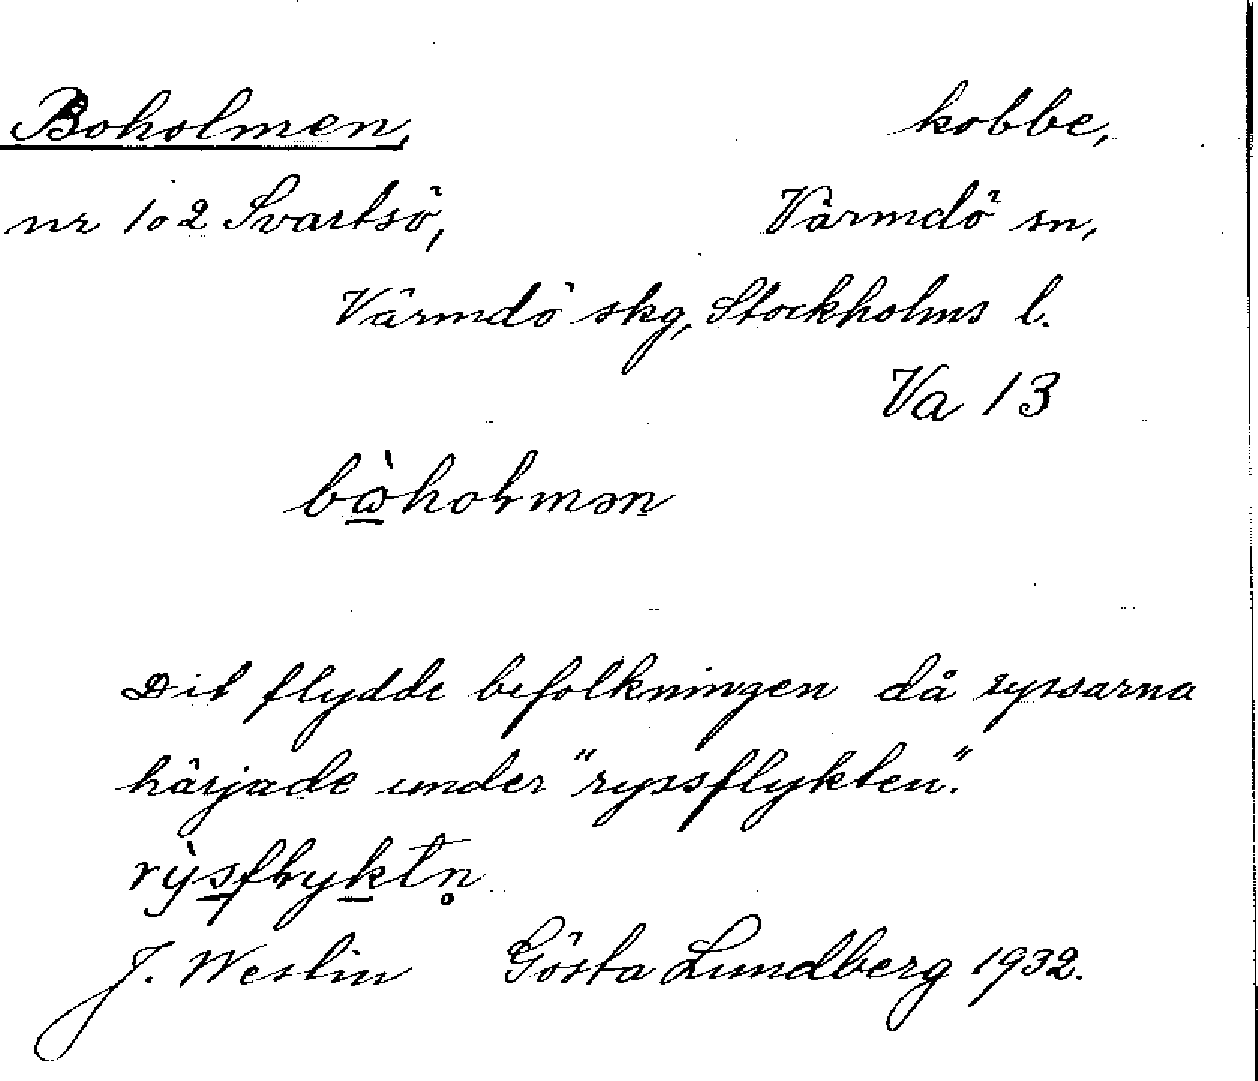 Boholmen, kobbe,
nr 102 Svartsö, Värmdö sn,
Värmdö skg, Stockholms l.
Va 13
bὼholmən
Dit flydde befolkningen då ryssarna
härjade under "ryssflykten".
rỳsflyktn̥
J. Westin Gösta Lundberg 1932.